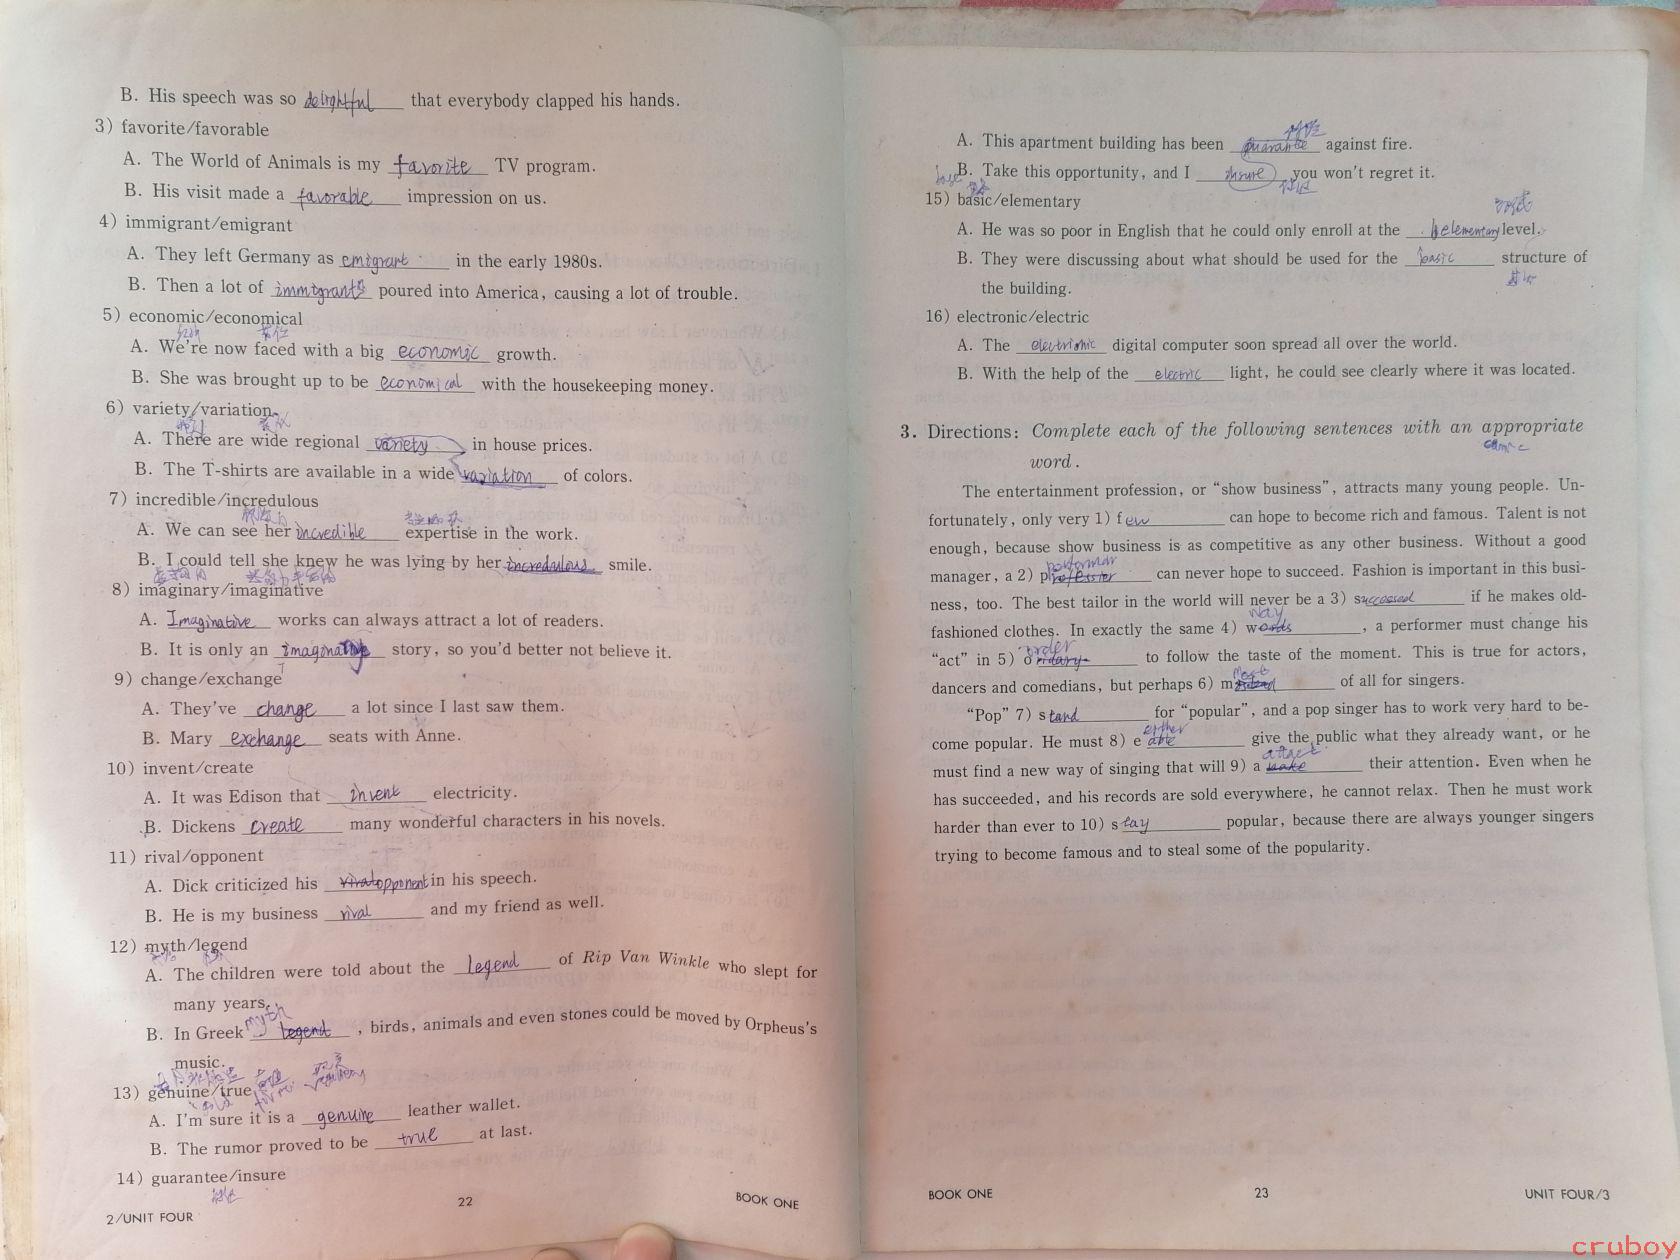 B. His speech was so delightful that everybody clapped his hands.
3) favorite/favorable
A. The World of Animals is my favorite TV program.
B. His visit made a favorable impression on us.
4) immigrant/emigrant
A. They left Germany as emigrant in the early 1980s.
B. Then a lot of immigrants poured into America, causing a lot of trouble.
5) economic/economical
A. We're now faced with a big economic growth.
B. She was brought up to be economical with the housekeeping money.
6) variety/variation
A. There are wide regional variety in house prices.
B. The T-shirts are available in a wide variation of colors.
7) incredible/incredulous
A. We can see her incredible expertise in the work.
B. I could tell she knew he was lying by her incredulous smile.
8) imaginary/imaginative
A. Imaginative works can always attract a lot of readers.
B. It is only an story, so you'd better not believe it.
9) change/exchange
A. They've change a lot since I last saw them.
B. Mary exchange seats with Anne.
10) invent/create
A. It was Edison that invent electricity.
B. Dickens create many wonderful characters in his novels.
11) rival/opponent
A. Dick criticized his opponent in his speech.
B. He is my business rival and my friend as well.
12) myth/legend
A. The children were told about the legend of Rip Van Winkle who slept for
many years.
myth
B. In Greek legend , birds, animals and even stones could be moved by Orpheus's
music.
13) genuine/true
A. I'm sure it is a genuine leather wallet.
B. The rumor proved to be true at last.
14) guarantee/insure
2/UNIT FOUR
22
BOOK ONE
A. This apartment building has been against fire.
B. Take this opportunity, and I insure you won't regret it.
15) basic/elementary
A. He was so poor in English that he could only enroll at the elementary level.
B. They were discussing about what should be used for the basic structure of
the building.
16) electronic/electric
A. The electrionic digital computer soon spread all over the world.
B. With the help of the electric light, he could see clearly where it was located.
3. Directions: Complete each of the following sentences with an appropriate
word.
The entertainment profession, or "show business", attracts many young people. Un-
fortunately, only very 1) few can hope to become rich and famous. Talent is not
enough, because show business is as competitive as any other business. Without a good
performar
manager, a 2) p can never hope to succeed. Fashion is important in this busi-
ness, too. The best tailor in the world will never be a 3) s if he makes old-
way
fashioned clothes. In exactly the same 4) words , a performer must change his
order
"act" in 5) o to follow the taste of the moment. This is true for actors,
most
dancers and comedians, but perhaps 6) m of all for singers.
"Pop" 7) stand for "popular", and a pop singer has to work very hard to be-
either
come popular. He must 8) e give the public what they already want, or he
must find a new way of singing that will 9) a their attention. Even when he
has succeeded, and his records are sold everywhere, he cannot relax. Then he must work
harder than ever to 10) stay popular, because there are always younger singers
trying to become famous and to steal some of the popularity.
BOOK ONE
23
UNIT FOUR/3
cruboy